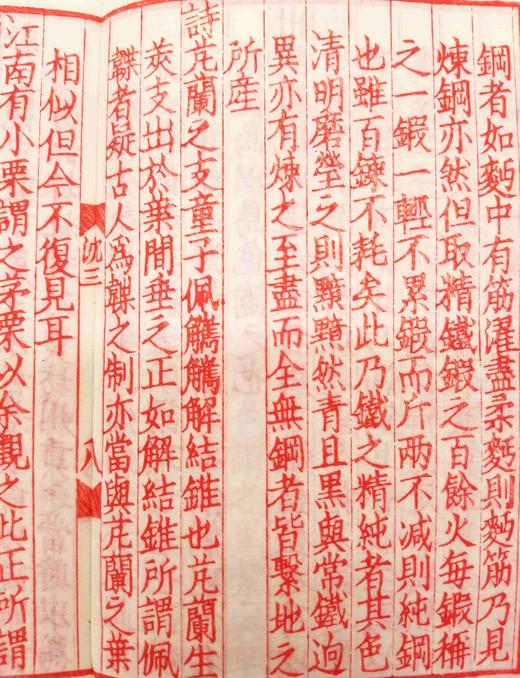 鋼者如麪中有筋濯盡柔麪則麪筋乃見
煉鋼亦然但取精鐵鍛之百餘火每鍛稱
之一鍛一輕不累鍛而斤兩不減則純鋼
也雖百鍊不耗矣此乃鐵之精純者其色
清明磨瑩之則黯黯然青且黑與常鐵逈
異亦有煉之至盡而全無鋼者皆繫地之
所産
詩芄蘭之支童子佩觿觿解結錐也芄蘭生
莢支出於葉間垂之正如解結錐所謂佩
韘者疑古人爲韘之制亦當與芄蘭之葉
相似但今不復見耳
沈三
八
江南有小栗謂之茅栗以余觀之此正所謂